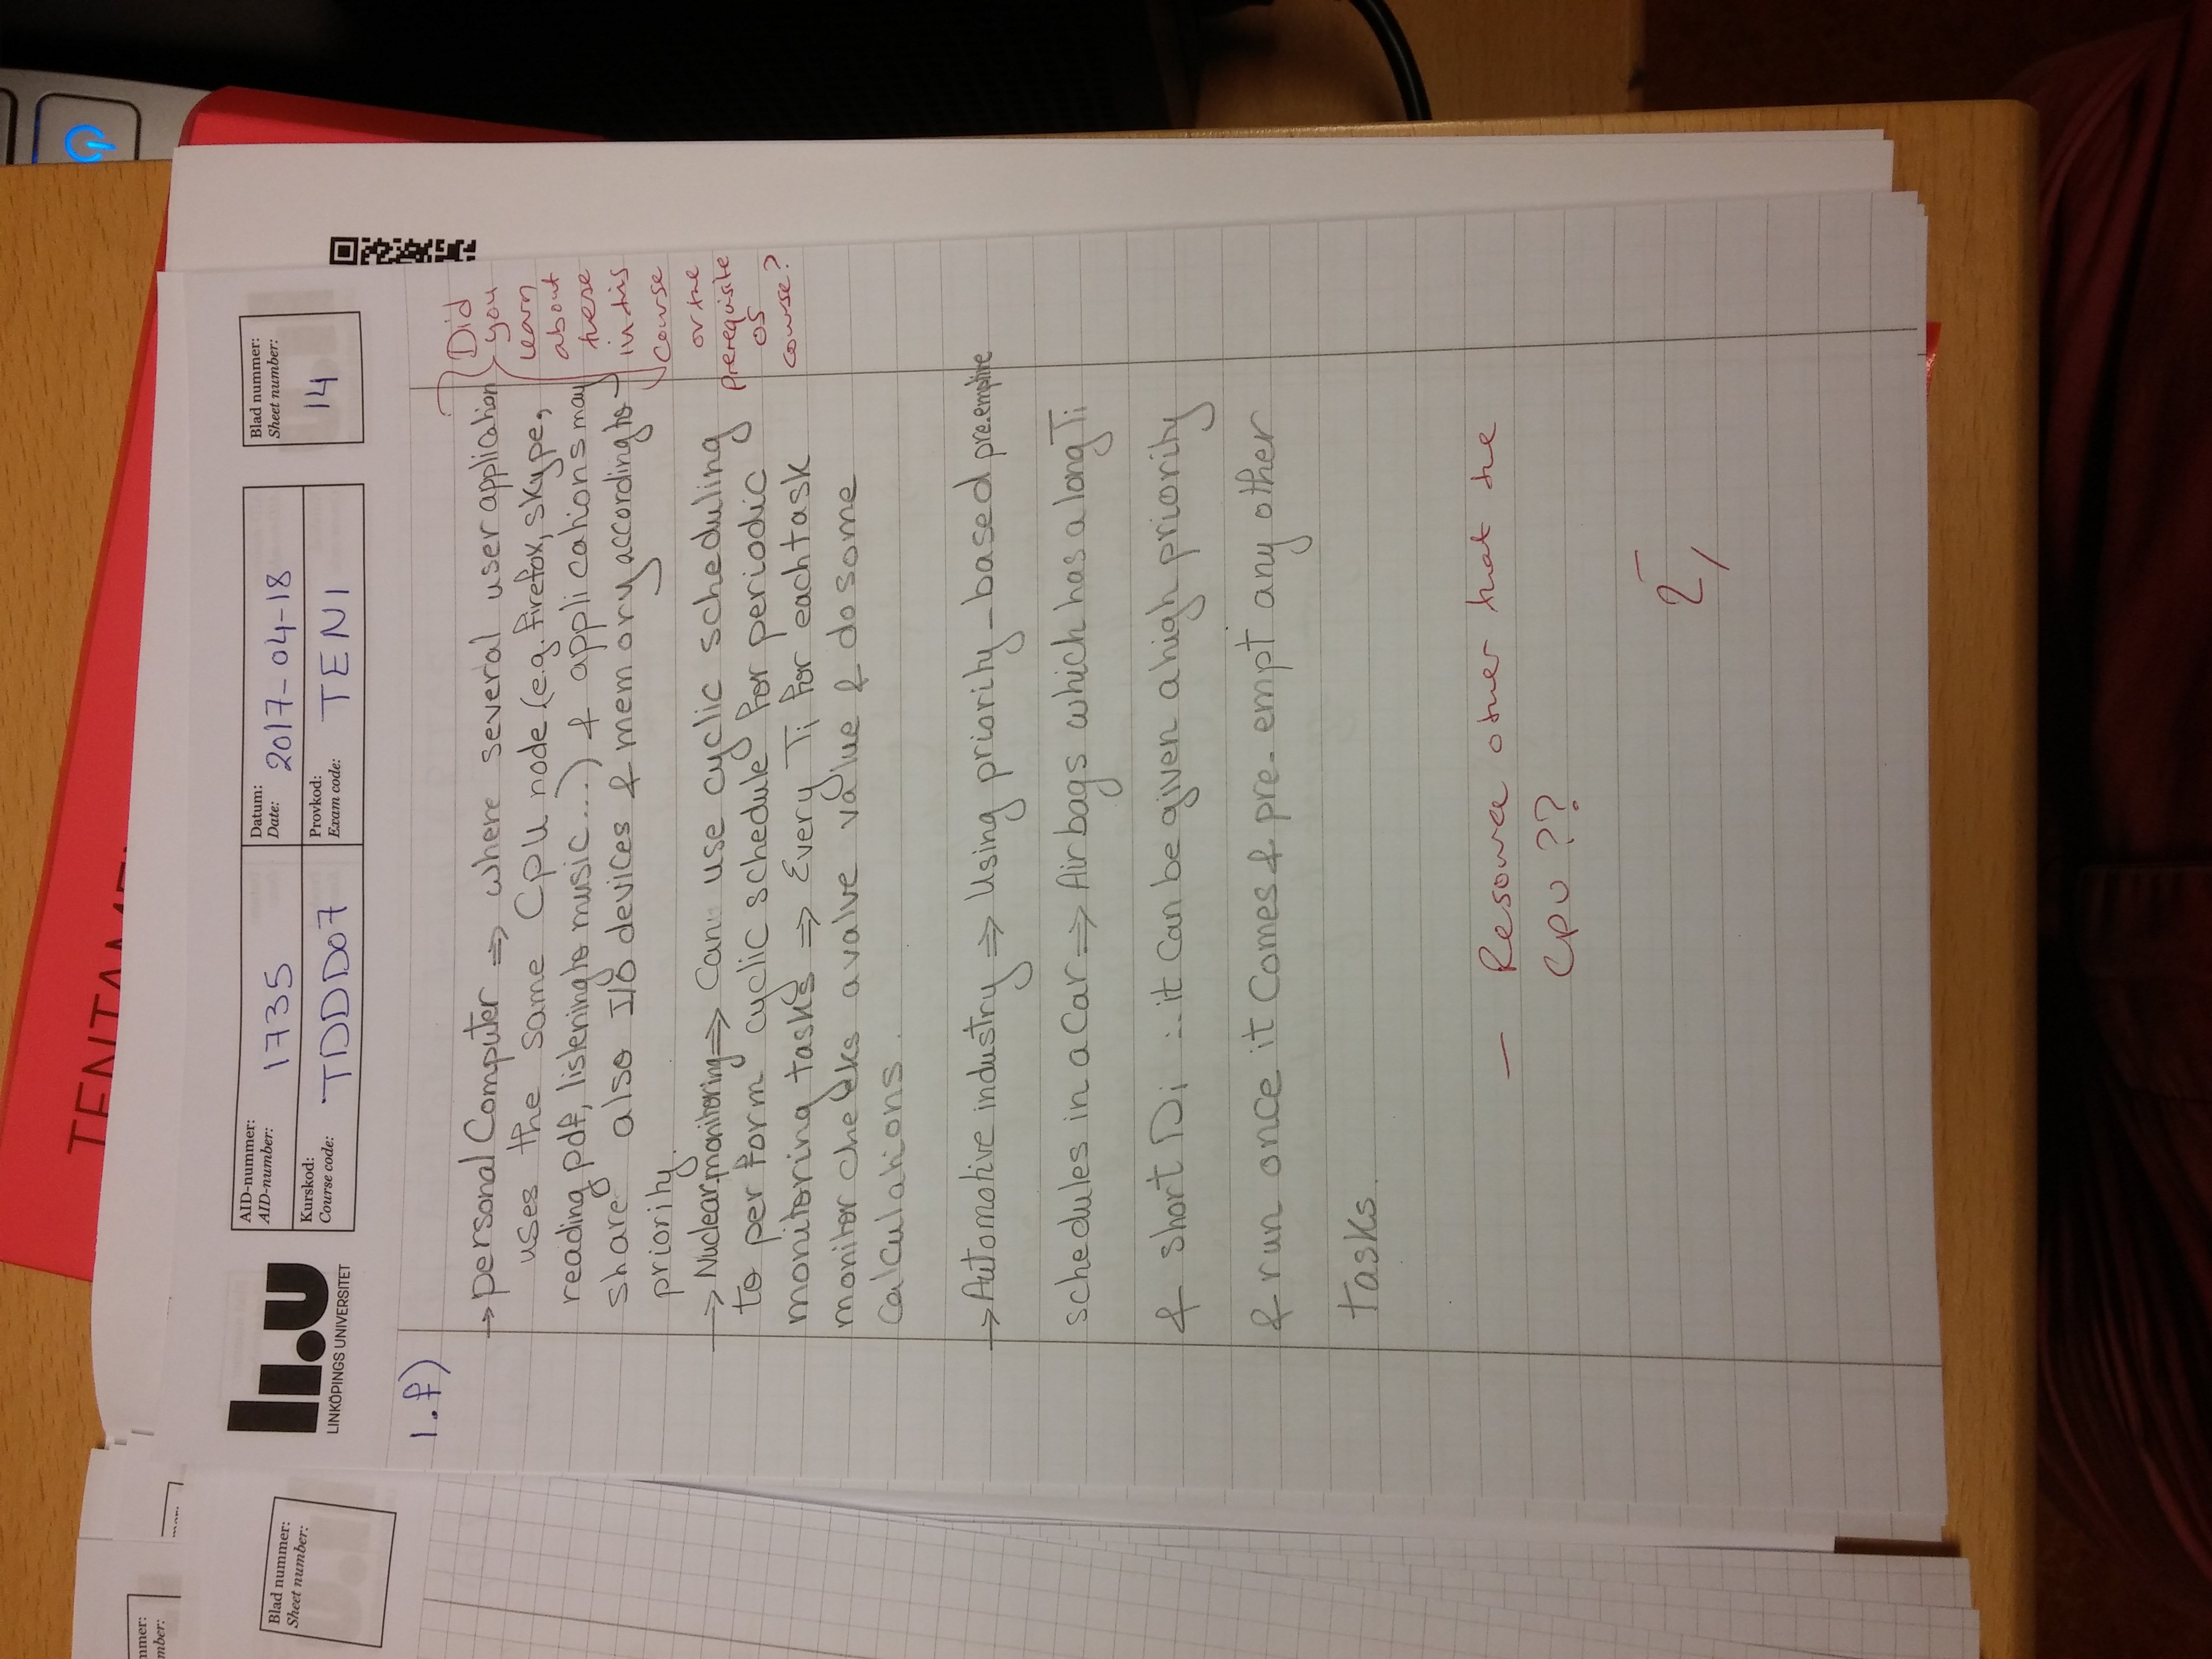 TENTAMEN
AID-nummer:
AID-number:
1735
Datum:
Date:
2017-04-18
Blad nummer:
Sheet number:
14
Kurskod:
Course code:
TDDD07
Provkod:
Exam code:
TEN1
LiU
LINKÖPINGS UNIVERSITET
1.f)
→ personal Computer ⇒ where several user application
uses the same Cpu node (e.g. Firefox, skype,
reading pdf, listening to music....) & applications may
share also I/O devices & memory according to
priority.
→ Nuclear monitoring ⇒ Can use cyclic scheduling
to perform cyclic schedule for periodic
monitoring tasks ⇒ Every Ti for each task
monitor checks a valve value & do some
Calculations.
→ Automotive industry ⇒ Using priority-based pre-emptive
schedules in a Car ⇒ Air bags which has a long Ti
& short Di ∴ it Can be given a high priority
& run once it Comes & pre-empt any other
tasks.
Did
you
learn
about
these
in this
course
or the
prerequisite
OS
course?
— Resource other that the
CPU ??
2
Blad nummer:
Sheet number:
mmer:
mber: